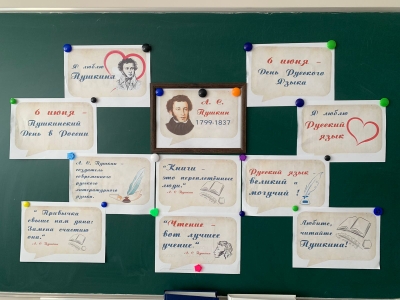 Я люблю
Пушкина
6 июня -
День Русского
Языка
А. С.
Пушкин
1799-1837
6 июня -
Пушкинский
День в России
Я люблю
Русский
язык
А. С. Пушкин -
создатель
современного
русского
литературного
языка.
"Книги -
это переплетённые
люди."
Русский язык
великий и
могучий !
"Привычка
свыше нам дана:
Замена счастию
она."
А. С. Пушкин
"Чтение -
вот лучшее
учение."
А. С. Пушкин
Любите,
читайте
Пушкина!